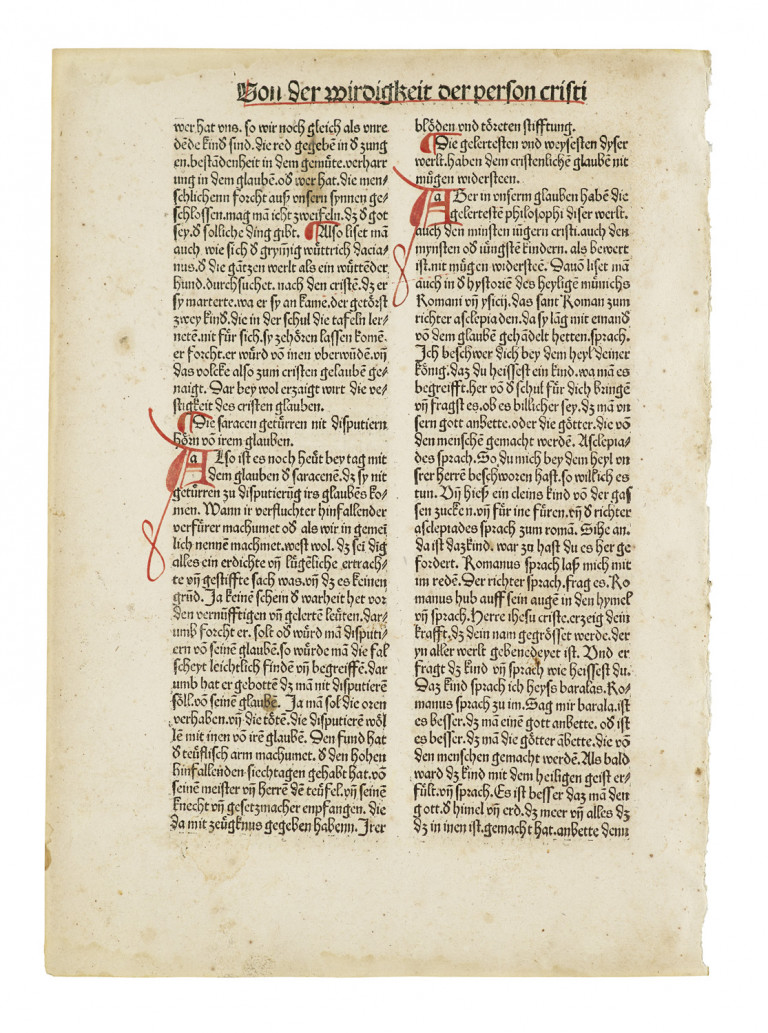 Von der wirdigkeit der person cristi
wer hat vns. so wir noch gleich als vnre⸗
dēde kind sind. die red gegeben in ď zung
en. bestādenheit in dem gemüte. verharr
ung in dem glaubē. oď wer hat. die men⸗
schlichenn forcht auß vnsern synnen ge⸗
schlossen. mag mā icht zweifeln. dz ď got
sey. ď solliche ding gibt. Also liset mā
auch wie sich ď grymig wüttrich dacia⸗
nus. ď die gātzen werlt als ein wüttēder
hund. durchsuchet. nach den cristē. dz er
sy marterte. wa er sy an kame. der getörst
zwey kind. die in der schul die tafeln ler⸗
netē. nit für sich. sy zehören lassen komē⸗
er forcht. er würd vō inen vberwūdē. vñ
das volcke also zum cristen gelauben ge⸗
naigt. Dar bey wol erzaigt wirt die ve⸗
stigkeit des cristen glauben.
Die saracen getürren nit disputiern
hörn vō irem glauben.
Also ist es noch heüt bey tag mit
dem glauben ď saracenē. dz sy nit
getürren zu disputierūg irs glaubēs ko⸗
men. Wann ir verfluchter hinfallender
verfürer machumet oď als wir in gemei
lich nennē machmet. west wol. dz sei dīg
alles ein erdichte vñ lügēliche ertrach⸗
te vñ gestiffte sach was. vñ dz es keinen
grūd. Ja keinē schein ď warheit het vor
den vernüfftigen vñ gelertē leüten. dar⸗
umb forcht er. solt oď würd mā disputi⸗
ern vō seinē glaubē. so würde mā die fal
scheyt leichtlich findē vñ begreiffē. dar
umb hat er gebottē dz mā nit disputierē
söll. vō seinē glaubē. Ja mā sol die oren
verhaben. vñ die tötē. die disputierē wöl
lē mit inen vō irē glaubē. Den fund hat
ď teüflisch arm machumet. ď den hohen
hinfallenden siechtagen gehabt hat. vō
seinē meister vñ herrē dē teüfel. vñ seinē
knecht vñ gesetzmacher enpfangen. die
da mit zeügknus gegeben habenn. Irer
blöden vnd töreten stifftung.
Die gelertesten vnd weysesten dyser
werlt. haben dem cristenlichē glaubē nit
mügen widersteen.
Aber in vnserm glauben habē die
gelertestē philosophi diser werlt.
auch den minsten iügern cristi. auch den
mynsten oď iüngstē kindern. als bewert
ist. nit mügen widersteē. Dauō liset mā
auch in ď hystoriē des heyligē münichs
Romani vñ ysicij. das sant Roman zum
richter asclepiaden. da sy lāg mit einand
vō dem glauben gehādelt hetten. sprach.
Ich beschwer dich bey dem heyl deiner
könig. daz du heissest ein kind. wa mā es
begreifft. her vō ď schul für dich bringē
vñ fragst es. ob es billicher sey. dz mā vn
sern gott anbette. oder die götter. die vō
den menschē gemacht werdē. Asclepia⸗
des sprach. So du mich bey dem heyl vn
srer herrē beschworen hast. so will ich es
tun. Vñ hieß ein cleins kind vō der gas
sen zucken. vñ für ine fürē. vñ ď richter
asclepiades sprach zum romā. Sihe an.
da ist daz kind. war zu hast du es her ge
fordert. Romanus sprach laß mich mit
im redē. Der richter sprach. frag es. Ro
manus hub auff sein augē in den hymel
vñ sprach. Herre ihesu criste. erzeig dein
krafft. dz dein nam gegrösset werde. der
yn aller werlt gebenedeyet ist. Vnd er
fragt dz kind vñ sprach wie heissest du.
Daz kind sprach ich heyss baralas. Ro⸗
manus sprach zu im. Sag mir barala. ist
es besser. dz mā einē gott anbette. oď ist
es besser. dz mā die götter ābette. die vō
den menschen gemacht werdē. Als bald
ward dz kind mit dem heiligen geist er⸗
fült. vñ sprach. Es ist besser daz mā den
gott. ď himel vñ erd. dz meer vñ alles dz
dz in inen ist. gemacht hat. anbette denn